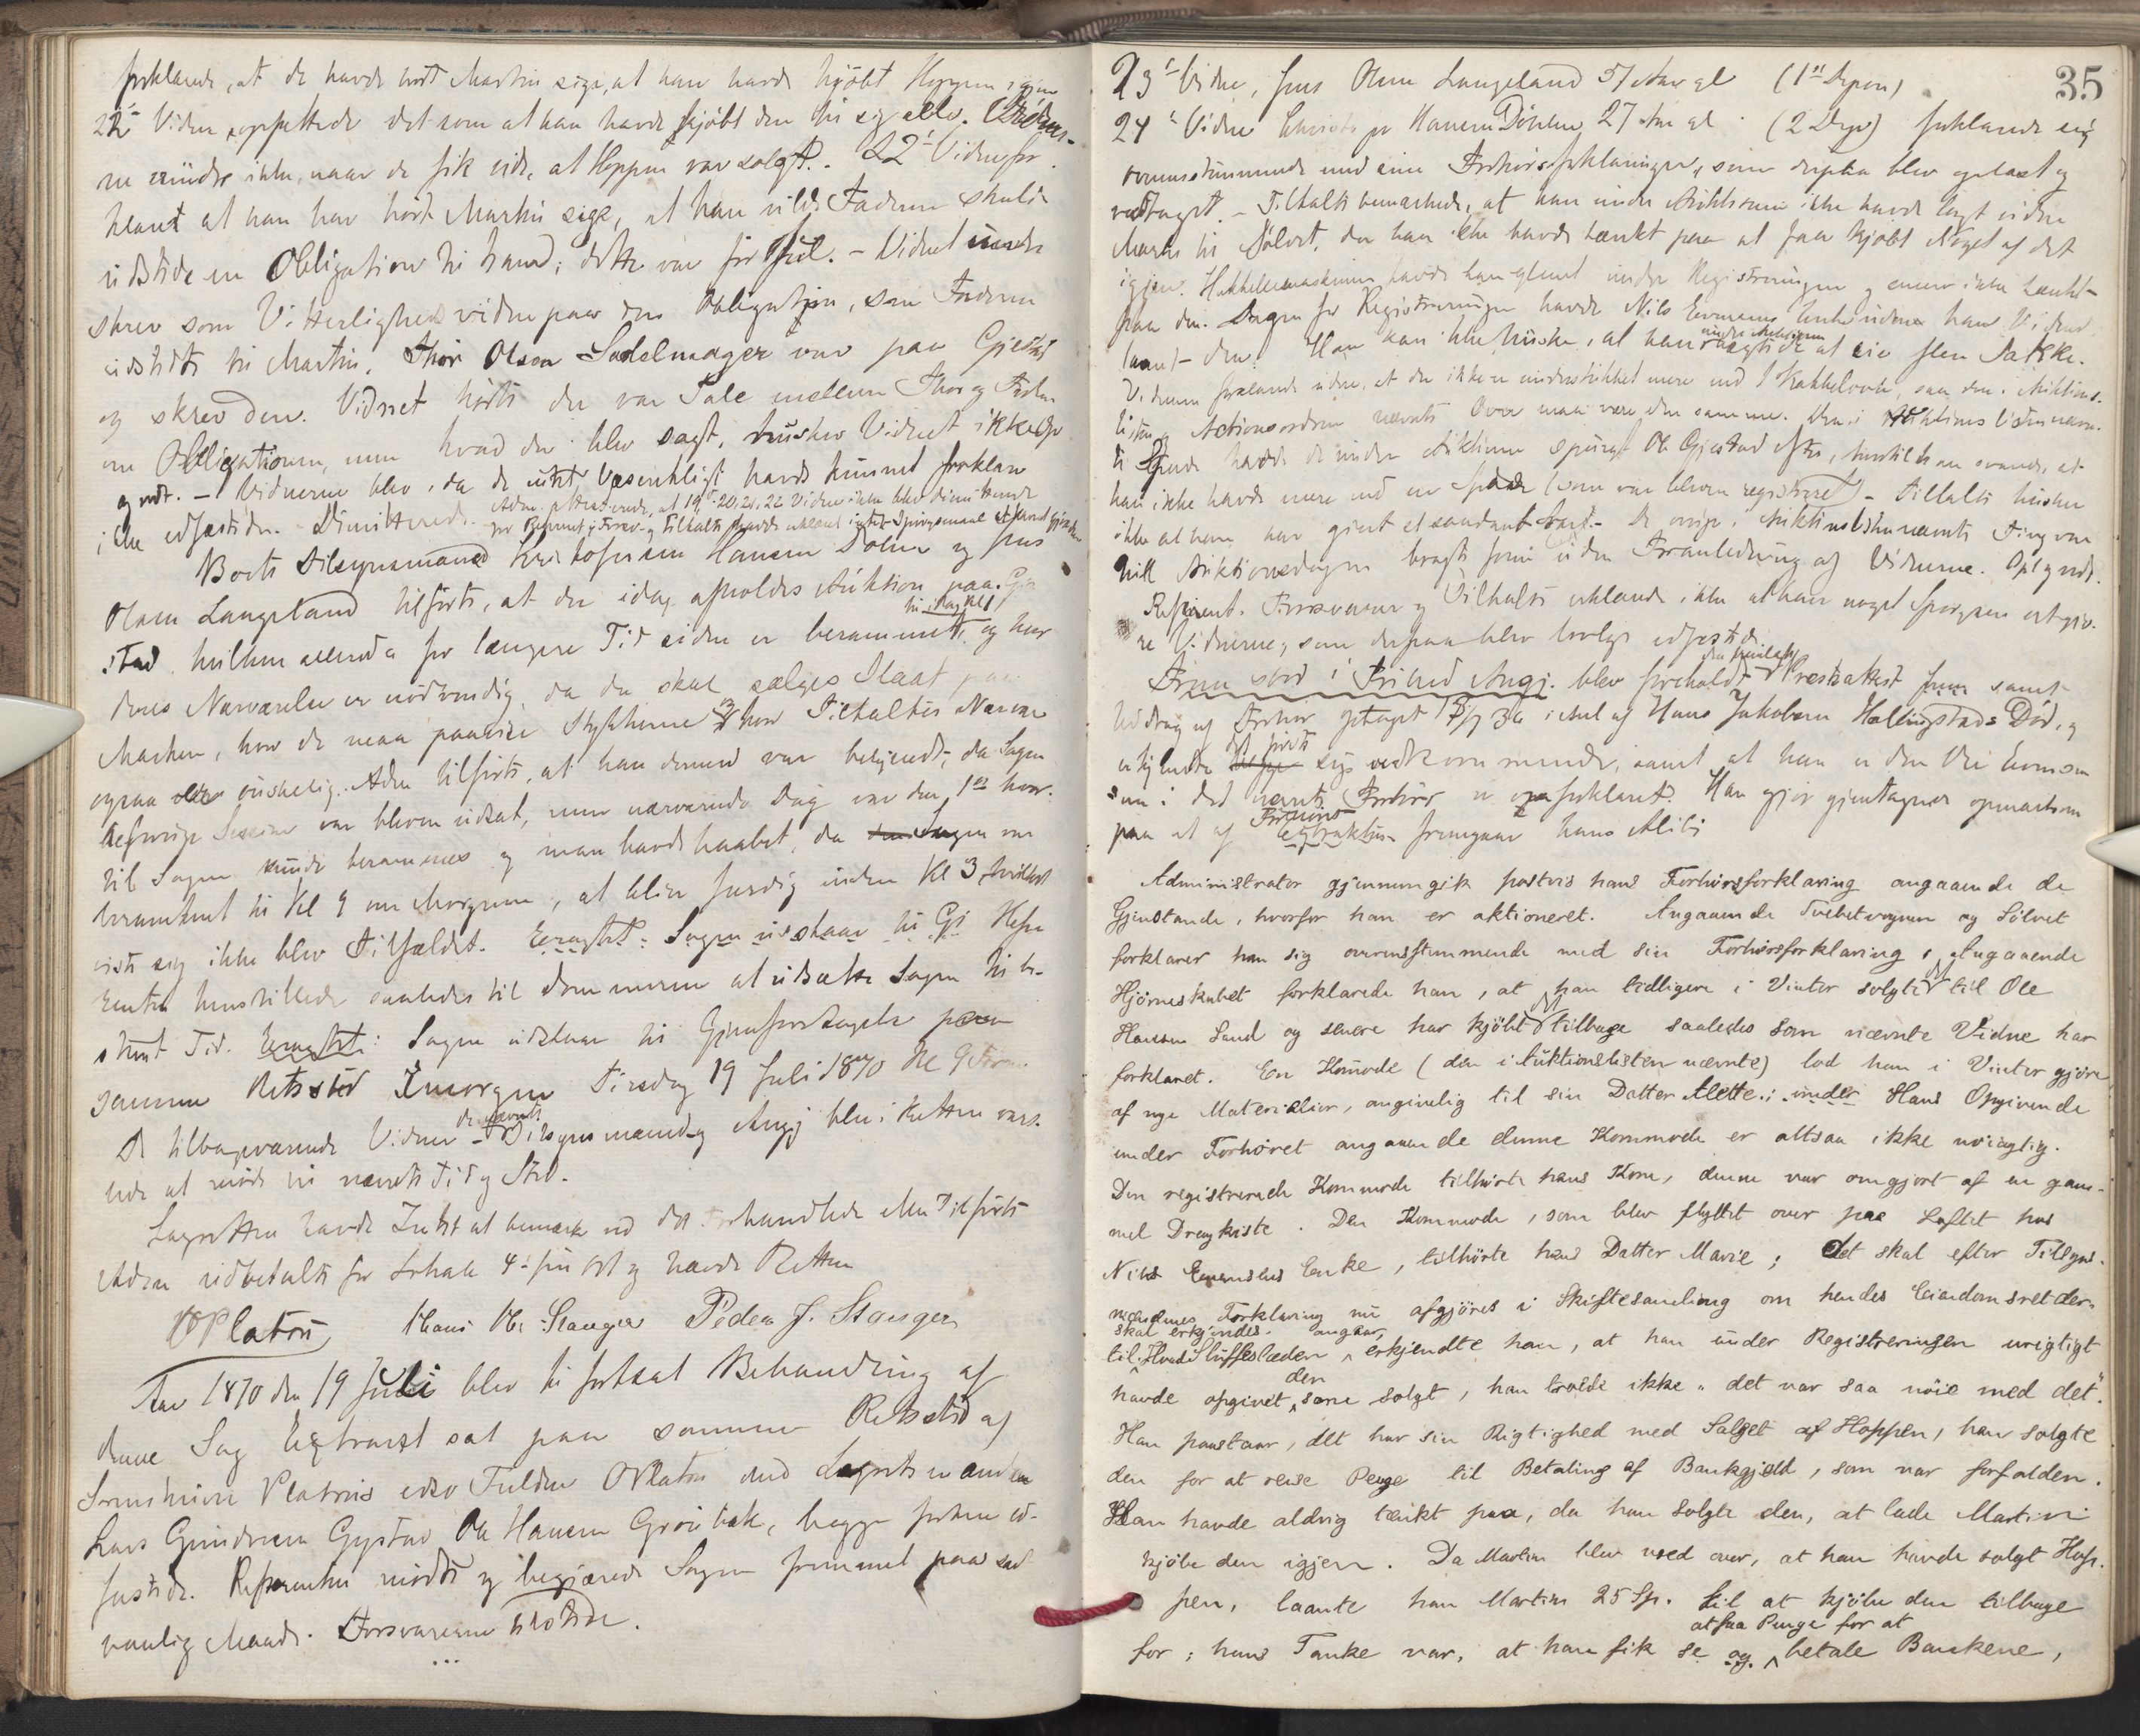 forklarede, at de havde hørt Martin sige, at han havde kjøbt Hoppen igjen
22de Vidne opfattede det som at han havde kjøbt den til sig selv. Vidner-
ne mindes ikke, naar de fik vide, at Hoppen var solgt. 22de Vidne for-
klaret at han har hørt Martin sige, at han vilde Faderen skulde
udstede en Obligation til ham; dette var før Jul. - Vidnet
skrev som Vitterlighedsvidne paa den Obligation, som Faderen
udstedte til Martin. Thor Olsen Sadelmager var paa Gjestad
og skrev den. Vidnet hørte der var Tale mellem Thor og
om Obligationen, men hvad der blev sagt, husker Vidnet ikke. Op-
og vedt. - Vidnerne blev, da de intet Væsentligt havde kunnet forklare
ikke edfæstede. Dimitterede. Adm. attesterede, at 19, 20, 21, 22 Vidne ikke blev dimitterede
før Referent, Forsv. og Tiltalte havde erklæret intet Spørgsmaal at have at gjøre dem
Boets Tilsynsmænd Kristofersen Hansen Døhlen og Jens
Olsen Langeland tilførte, at der idag afholdes Auktion paa Gje-
stad, hvilken allerede for længere Tid siden er berammet til idag Kl 1, og hvor
deres Nærværelse er nødvendig, da der skal sælges Slaat paa
Marken, hvor de maa paavise Stykkerne og hvor Tiltaltes Nærvær
ogsaa er ønskelig. Adm tilførte, at han dermed var bekjendt, da Sagen
i forrige Session var bleven udsat, men nærværende Dag var den 1ste hvor-
til Sagen kunde berammes og man havde haabet, da Sagen var
berammet til Kl 9 om Morgenen, at blive færdig inden Kl 3, hvilket
viste sig ikke blev Tilfældet. Eragtet: Sagen udstaar til Gj. Refe-
renten henstillede saaledes til Dommeren at udsætte Sagen til be-
stemt Tid. Eragtet: Sagen udstaar til Gjenforetagelse paa
samme Retssted Imorgen Tirsdag 19 Juli 1870 Kl 9 Form.
De tilbageværende Vidner - de nævnte Tilsynsmænd og Angj blev i Retten vars-
lede at møde til nævnte Tid og Sted.
Lagretten havde Intet at bemærke ved det Forhandlede eller Tilførte
Adm udbetalte for Lokale 4 og hævde Retten
OPlatou Hans Chr: Stanger Peder J. Stanger
Aar 1870 den 19 Juli blev til fortsat Behandling af
denne Sag Extraret sat paa samme Retssted af
Sorenskriver Platous edsv Fuldm OPlatou med Lagrettemændene
Lars Gundersen Gystad Ole Hansen Grönbæk, begge forhen ed-
fæstede. Referenten mødte og begjærede Sagen fremmet paa sed-
vanlig Maade. Forsvareren tilstede.
...
35
23de Vidne, Jens Olsen Langeland 51 Aar gl (1ste Depon)
24de Vidne Christofer Hansen Döhlen 27 Aar gl. (2 Dep) forklarede sig
overensstemmende med sine Forhørsforklaringer, som derpaa blev oplæst og
vedtaget. - Tiltalte bemærkede, at han under Auktionen ikke havde lagt videre
Mærke til Sølvet, da han ikke havde tænkt paa at faa kjøbt Noget af det
igjen. Hakkelsesmaskinen havde han glemt under Registreringen og senere ikke tænkt
paa den. Dagen før Registreringen havde Nils Evensens Enke uden hans Viden
laant den. Han kan ikke huske, at han under Auktionen nægtede at eie flere Sække.
Vidnerne forklarede videre, at der ikke er understukket mere end 1 Kakkelovn, saa den i Auktions-
listen og Actionsordren nævnte Ovn maa være den samme. Den i Auktions Listen nævn-
te Spade havde de under Auktionen spurgt Ole Gjestad efter, hvortil han svarede, at
han ikke havde mere end en Spade (som var bleven registreret) - Tiltalte husker
ikke at han har givet et saadant Svar. - De øvrige i Auktionslisten nævnte Ting var
till Auktionsdagen bragt frem uden Foranledning af Vidnerne. Opl og vedt.
Referent. Forsvarer og Tiltalte erklærede ikke at have noget Spørgsm at gjø-
re Vidnerne, som derpaa blev lovlig edfæstede
Frem stod i Frihed Angj. blev foreholdt den fremlagte Presteattest frem samt
Uddrag af Forhør optaget 13/7 36 i Anl af Hans Jakobsen Hollingstads Död, og
erkjendte det første sig vedkommende, samt at han er den Ole Evensen
som i det nævnte Forhör er afforklaret. Han gjør gjentagende opmærksom
paa at af Frisons Extrakten fremgaar hans Alibi
Administrator gjennemgik postvis hans Forhørsforklaring angaaende de
Gjenstande, hvorfor han er aktioneret. Angaaende Tvebetvognen og Sölvet
forklarer han sig overensstemmende med sin Forhørsforklaring, Angaaende
Hjörneskabet forklarede han, at han tidligere i Vinter solgte det til Ole
Hansen Sand og senere har kjøbt det tilbage saaledes som nævnte Vidne har
forklaret. En Komode (den i Auktionslisten nævnte) lod han i Vinter gjøre
af nye Materialier, angivelig til sin Datter Alette; under Hans Opgivende
under Forhöret angaaende denne Kommode er altsaa ikke nöiagtig.
Den registrerede Kommode tilhørte hans Kone, denne var omgjort af en gam-
mel Dragkiste. Den Kommode, som blev flyttet over paa Loftet hos
Nils Evensens Enke, tilhörte hans Datter Marie; det skal efter Tilsyns-
mændenes Forklaring nu afgjöres i Skiftesamling om hendes Eiendomsret der-
til skal erkjendes. Hvad Sluffeslæden angaar, erkjendte han, at han under Registreringen urigtigt
havde opgivet den som solgt, han troede ikke "det var saa nöie med det".
Han paastaar, det har sin Rigtighed med Salget af Hoppen, han solgte
den for at reise Penge til Betaling af Bankgjæld, som var forfalden.
Han havde aldrig tænkt paa, da han solgte den, at lade Martin
kjöbe den igjen. Da Martin blev vred over, at han havde solgt Hop-
pen, laante han Martin 25 Sp. til at kjöbe den tilbage
for; hans Tanke var, at han fik se og at faa Penge for at betale Bankene,